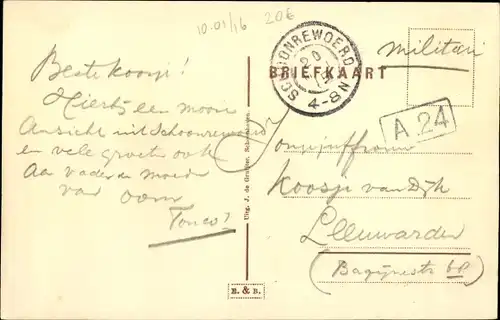 10.01/16 20€
SCHOONREWOERD
20
4-8N
militair
BRIEFKAART
A.24
Beste Koosje!
Hierbij een mooi
Ansicht uit Schoonrewoerd
en vele groeten ook
aan vader en moeder
van oom
Uitg. J. de Gruijter, Schoonrewoerd.
Jonge juffrouw
Koosje van Dijk
Leeuwarden
(Bagijnestr 68)
E. & B.